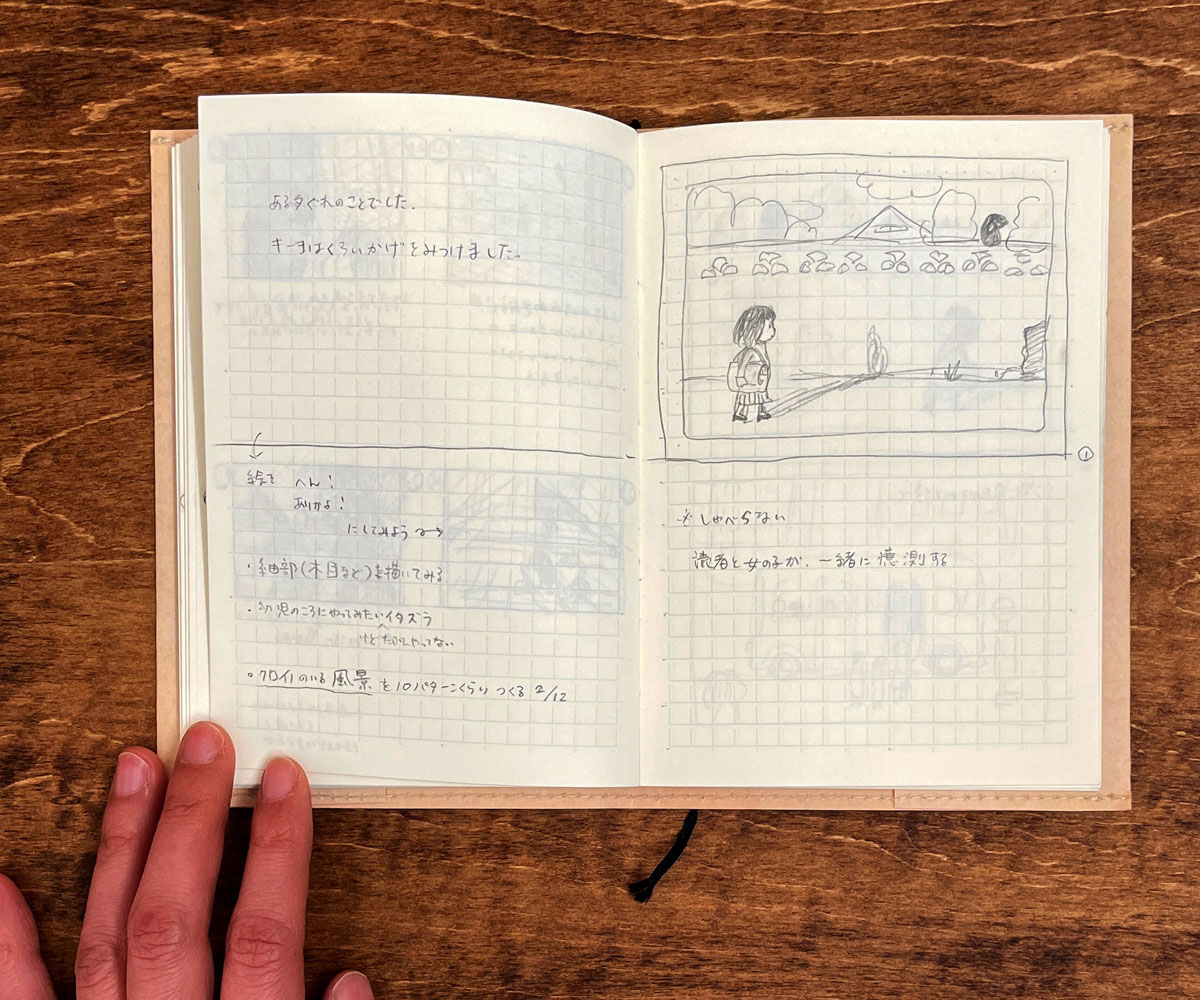 ある夕ぐれのことでした。
キーヨはくろいかげをみつけました。
絵を へん!
ありかよ!
にしてみよう
・細部(木目など)を描いてみる
・幼児のころにやってみたいイタズラ
けど たぶんやってない
・クロイノのいる風景を10パターンくらいつくる 2/12
①
しゃべらない
読者と女の子が、一緒に憶測する